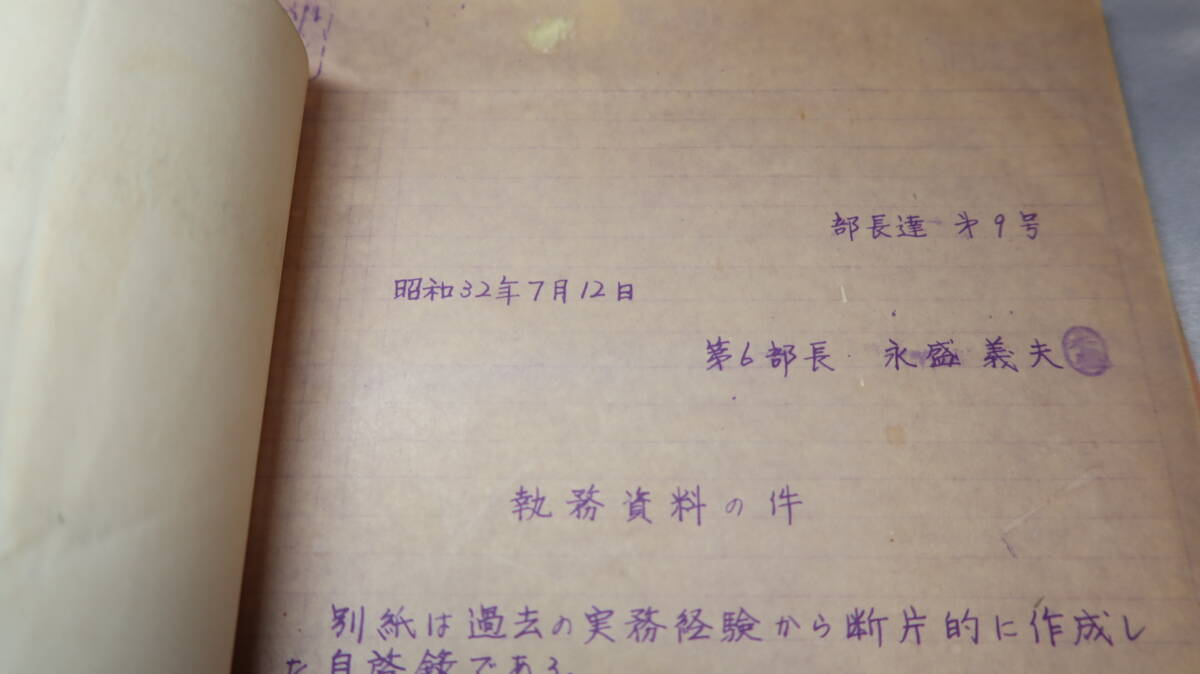 部長達 㐧9号
昭和32年7月12日
第6部長 永盛義夫
執務資料の件
別紙は過去の実務経験から断片的に作成し
た自啓録である。